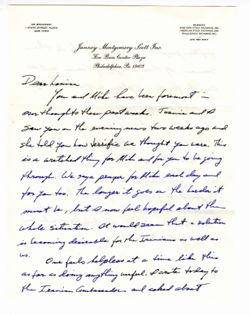 Janney Montgomery Scott Inc.
Five Penn Center Plaza
Philadelphia, Pa. 19103
Dear Louisa
You and Mike have been foremost in
our thoughts these past weeks. and I
saw you on the evening news two weeks ago and
she told you how terrific we thought you were. This
is a wretched thing for Mike and for you to be going
through. We say a prayer for Mike each day and
for you too. The longer it goes on the harder it
must be, but I now feel hopeful about the
whole situation. It would seem that a solution
is becoming desirable for the Iranians as well as
us.
One feels helpless at a time like this
as far as doing anything useful. I wrote today to
the Iranian Ambassador and asked about